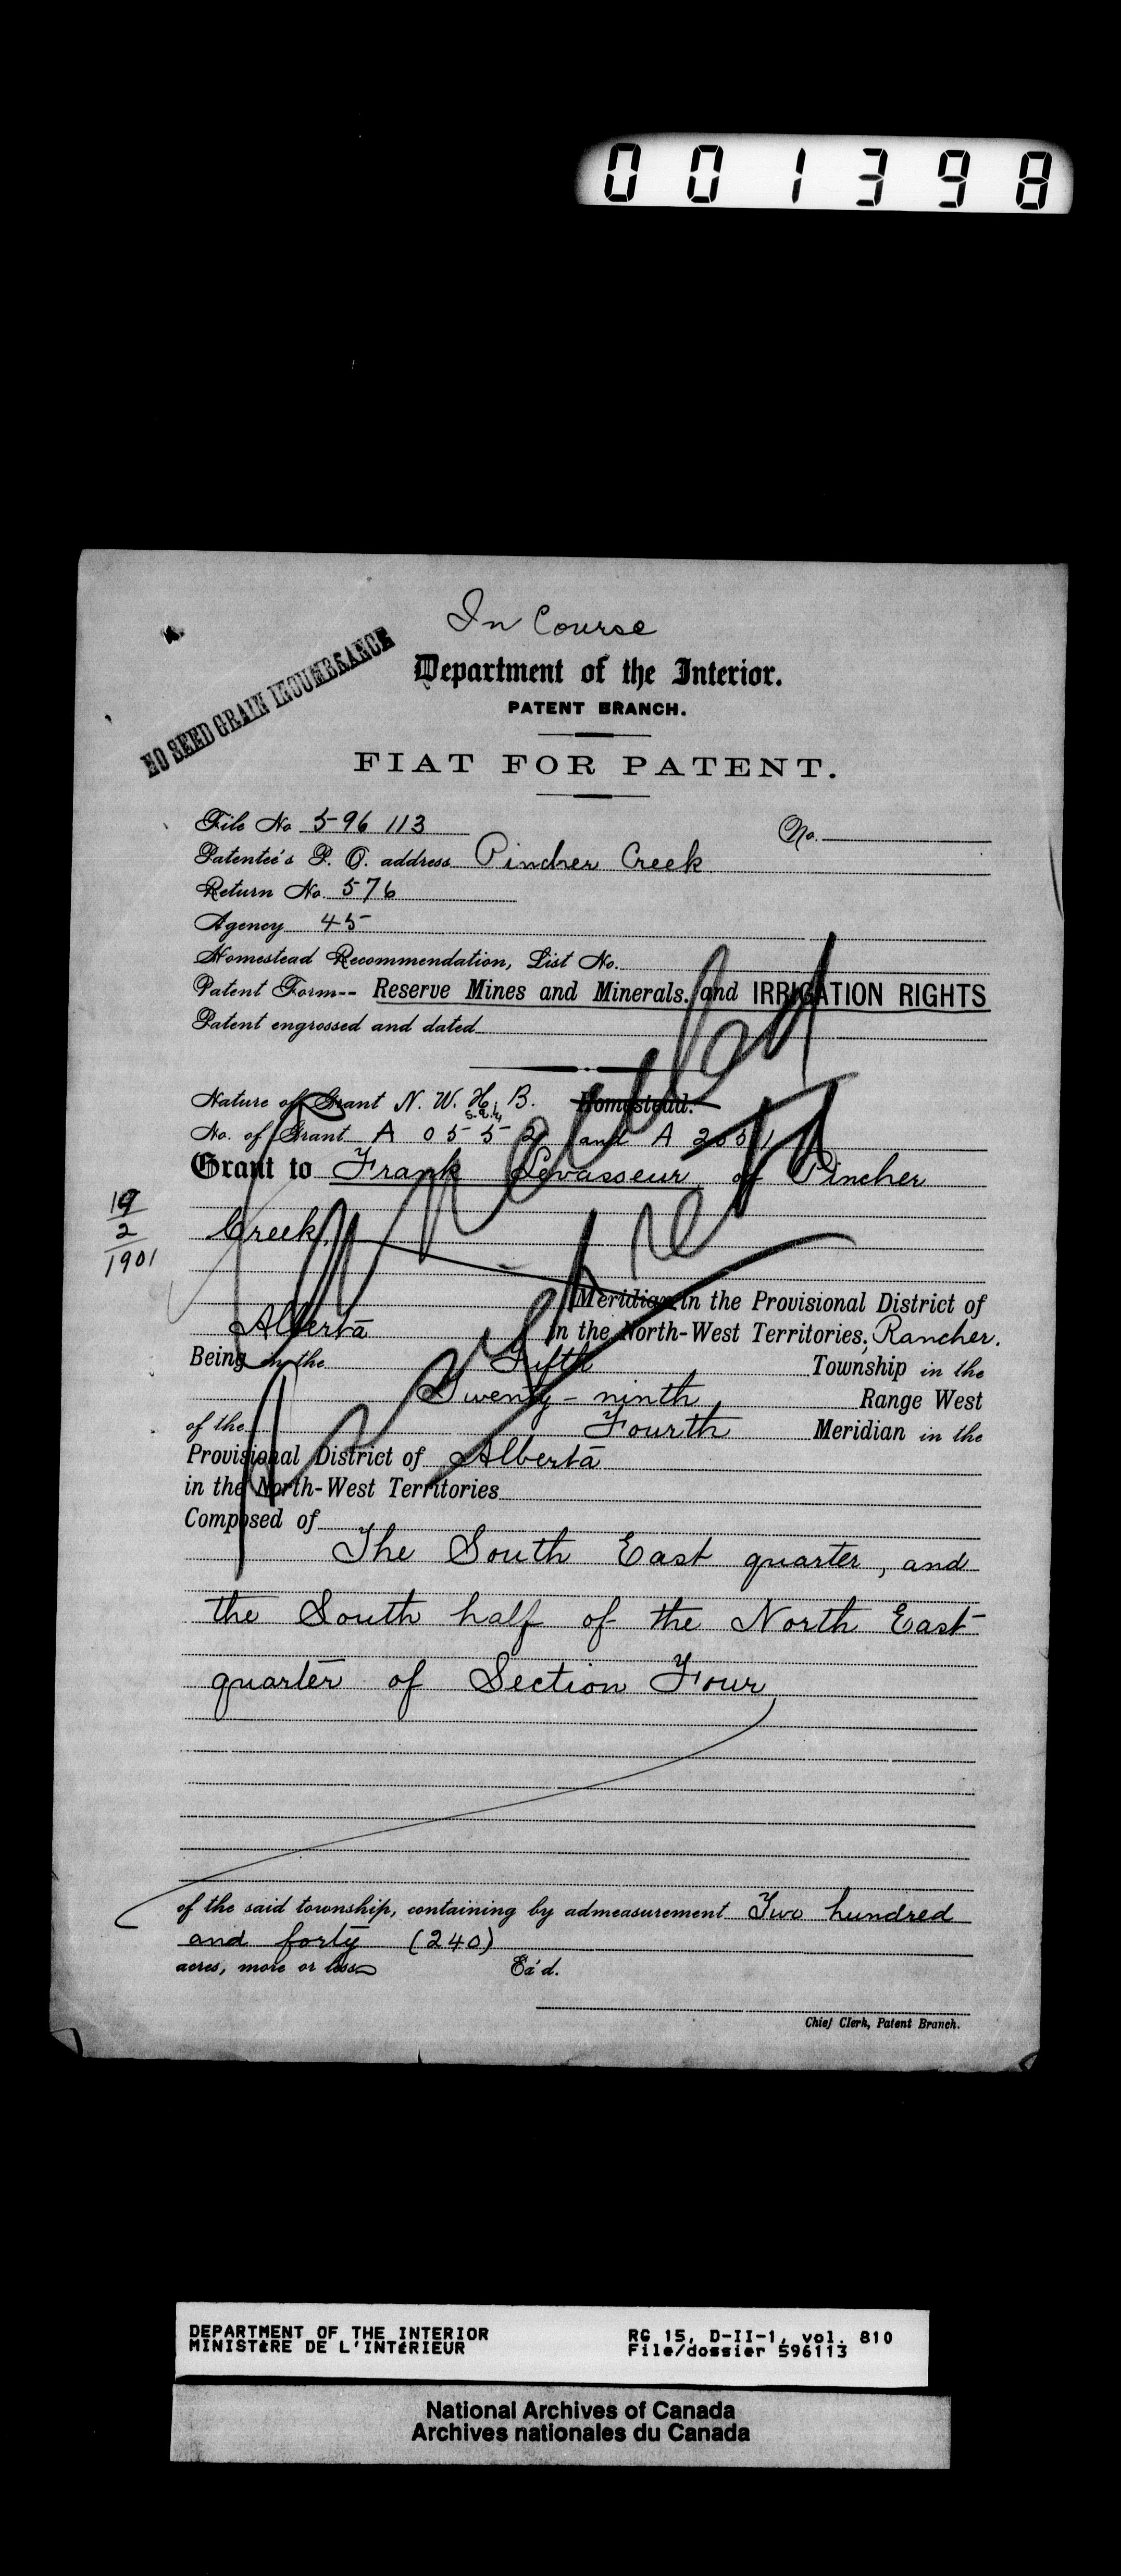 001398
In Course
NO SEED GRAIN INCUMBRANCE
Department of the Interior.
PATENT BRANCH.
FIAT FOR PATENT.
File No 596 113
No.
Patentee's P. O. address Pincher Creek
Return No. 576
Agency 45
Homestead Recommendation, List No.
Patent Form-- Reserve Mines and Minerals. and IRRIGATION RIGHTS
Patent engrossed and dated
Nature of Grant N. W. H. B. Homestead.
No. of Grant A 0552 and A
Grant to Frank Levasseur of Pincher
Creek,
19
2
1901
Meridian in the Provisional District of
Alberta in the North-West Territories, Rancher.
Being in the Fifth Township in the
Twenty-ninth Range West
of the Fourth Meridian in the
Provisional District of Alberta
in the North-West Territories
Composed of
The South East quarter, and
the South half of the North East
quarter of Section Four
of the said township, containing by admeasurement Two hundred
and forty (240)
acres, more or less
Ex'd.
Chief Clerk, Patent Branch.
DEPARTMENT OF THE INTERIOR RG 15, D-II-1, vol. 810
MINISTÈRE DE L'INTÉRIEUR File/dossier 596113
National Archives of Canada
Archives nationales du Canada